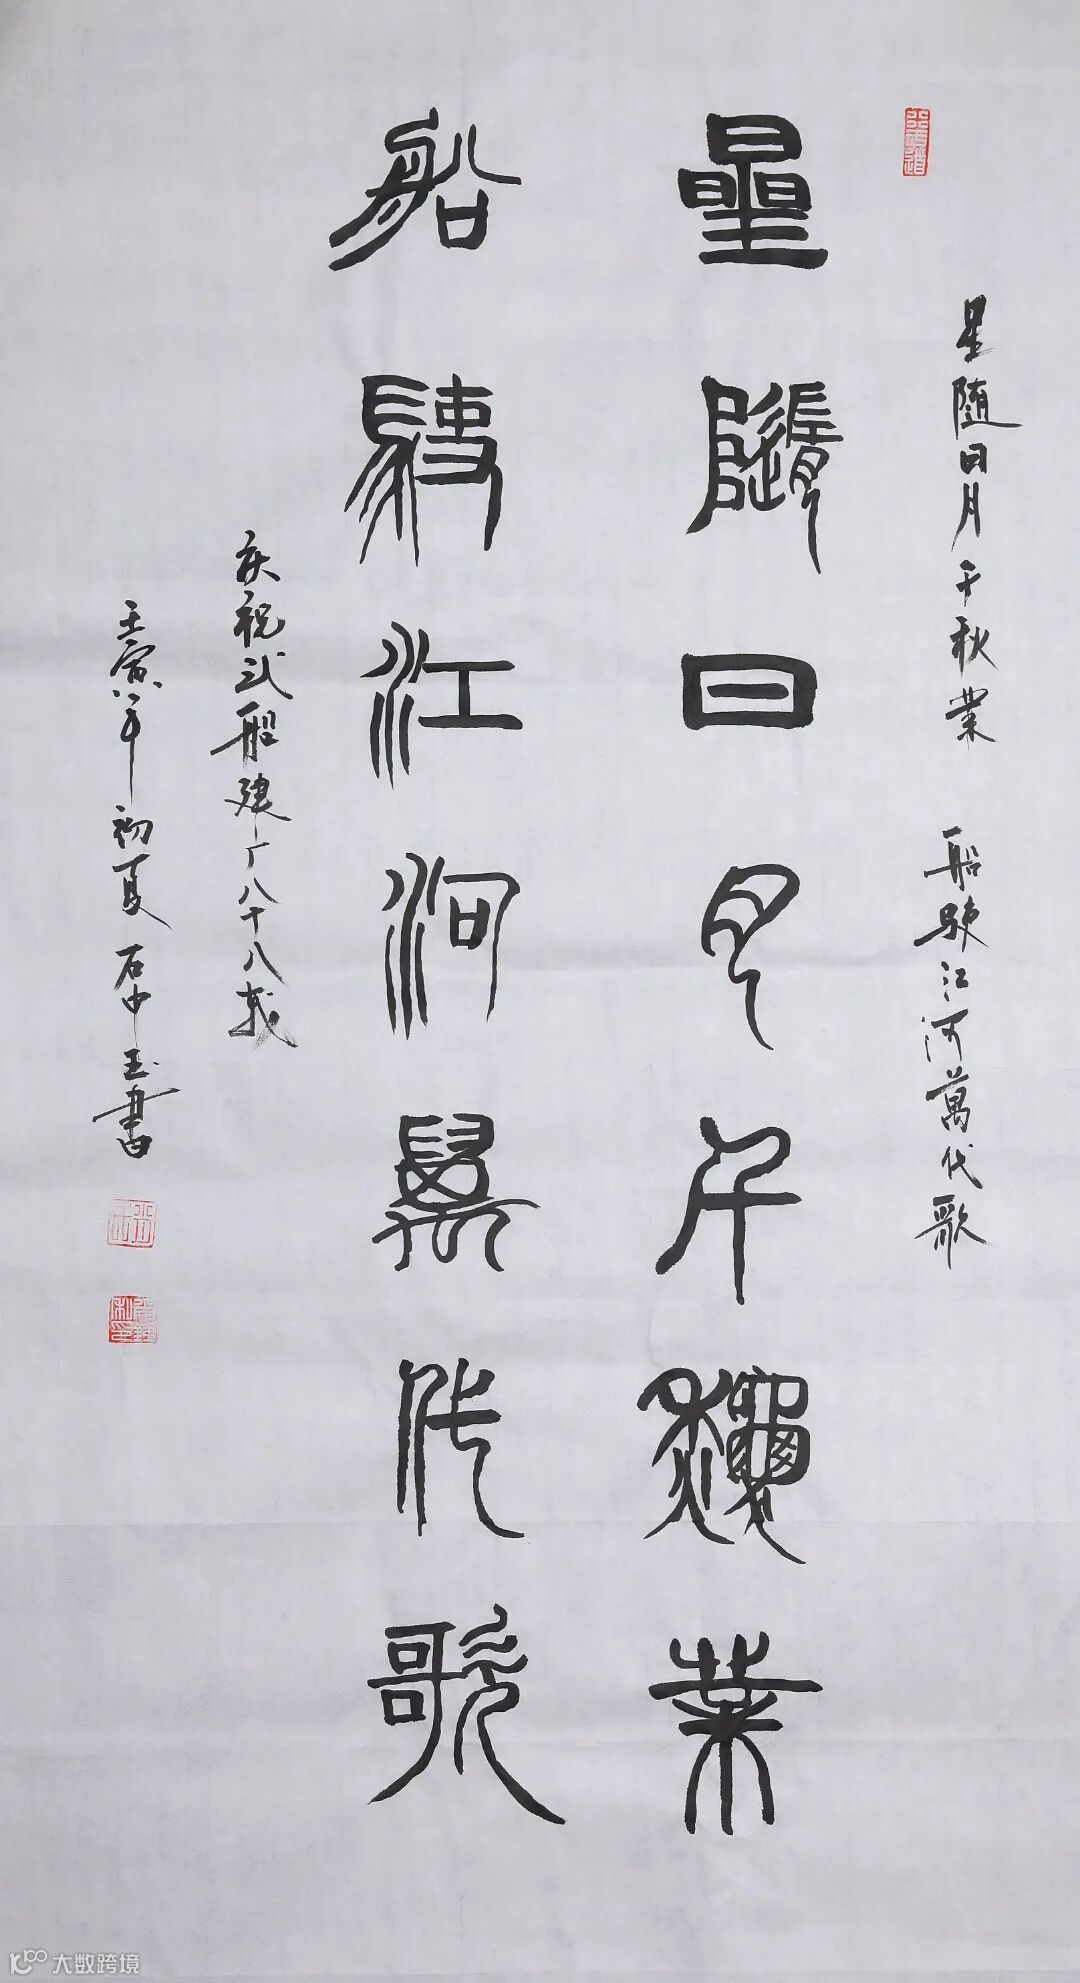 星随日月千秋業 船駛江河萬代歌
星隨日月千秋業
船駛江河萬代歌
庆祝武船建厂八十八载
壬寅年初夏 石中玉書
大数跨境